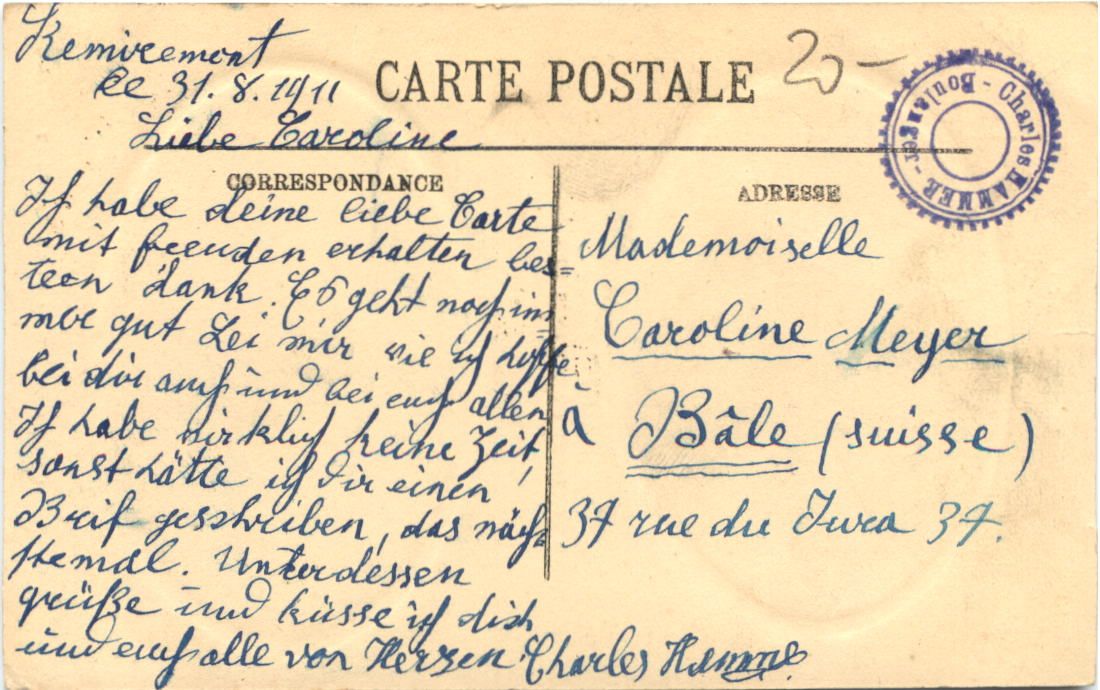 Remiremont
le 31. 8. 1911
20 –
CARTE POSTALE
Charles HAMMER - Boulanger -
Liebe Caroline
CORRESPONDANCE
Ich habe deine liebe Carte
mit freuden erhalten bes=
teen dank. Es geht noch im=
mer gut bei mir wie ich hoffe
bei dir auch und bei euch allen
Ich habe wirklich keine Zeit,
sonst hätte ich dir einen
Brif geschriben, das näch=
stemal. Unterdessen
grüße und küsse ich dich
und euch alle von Herzen Charles Hammer
ADRESSE
Mademoiselle
Caroline Meyer
à Bâle (suisse)
37 rue du Jura 37.